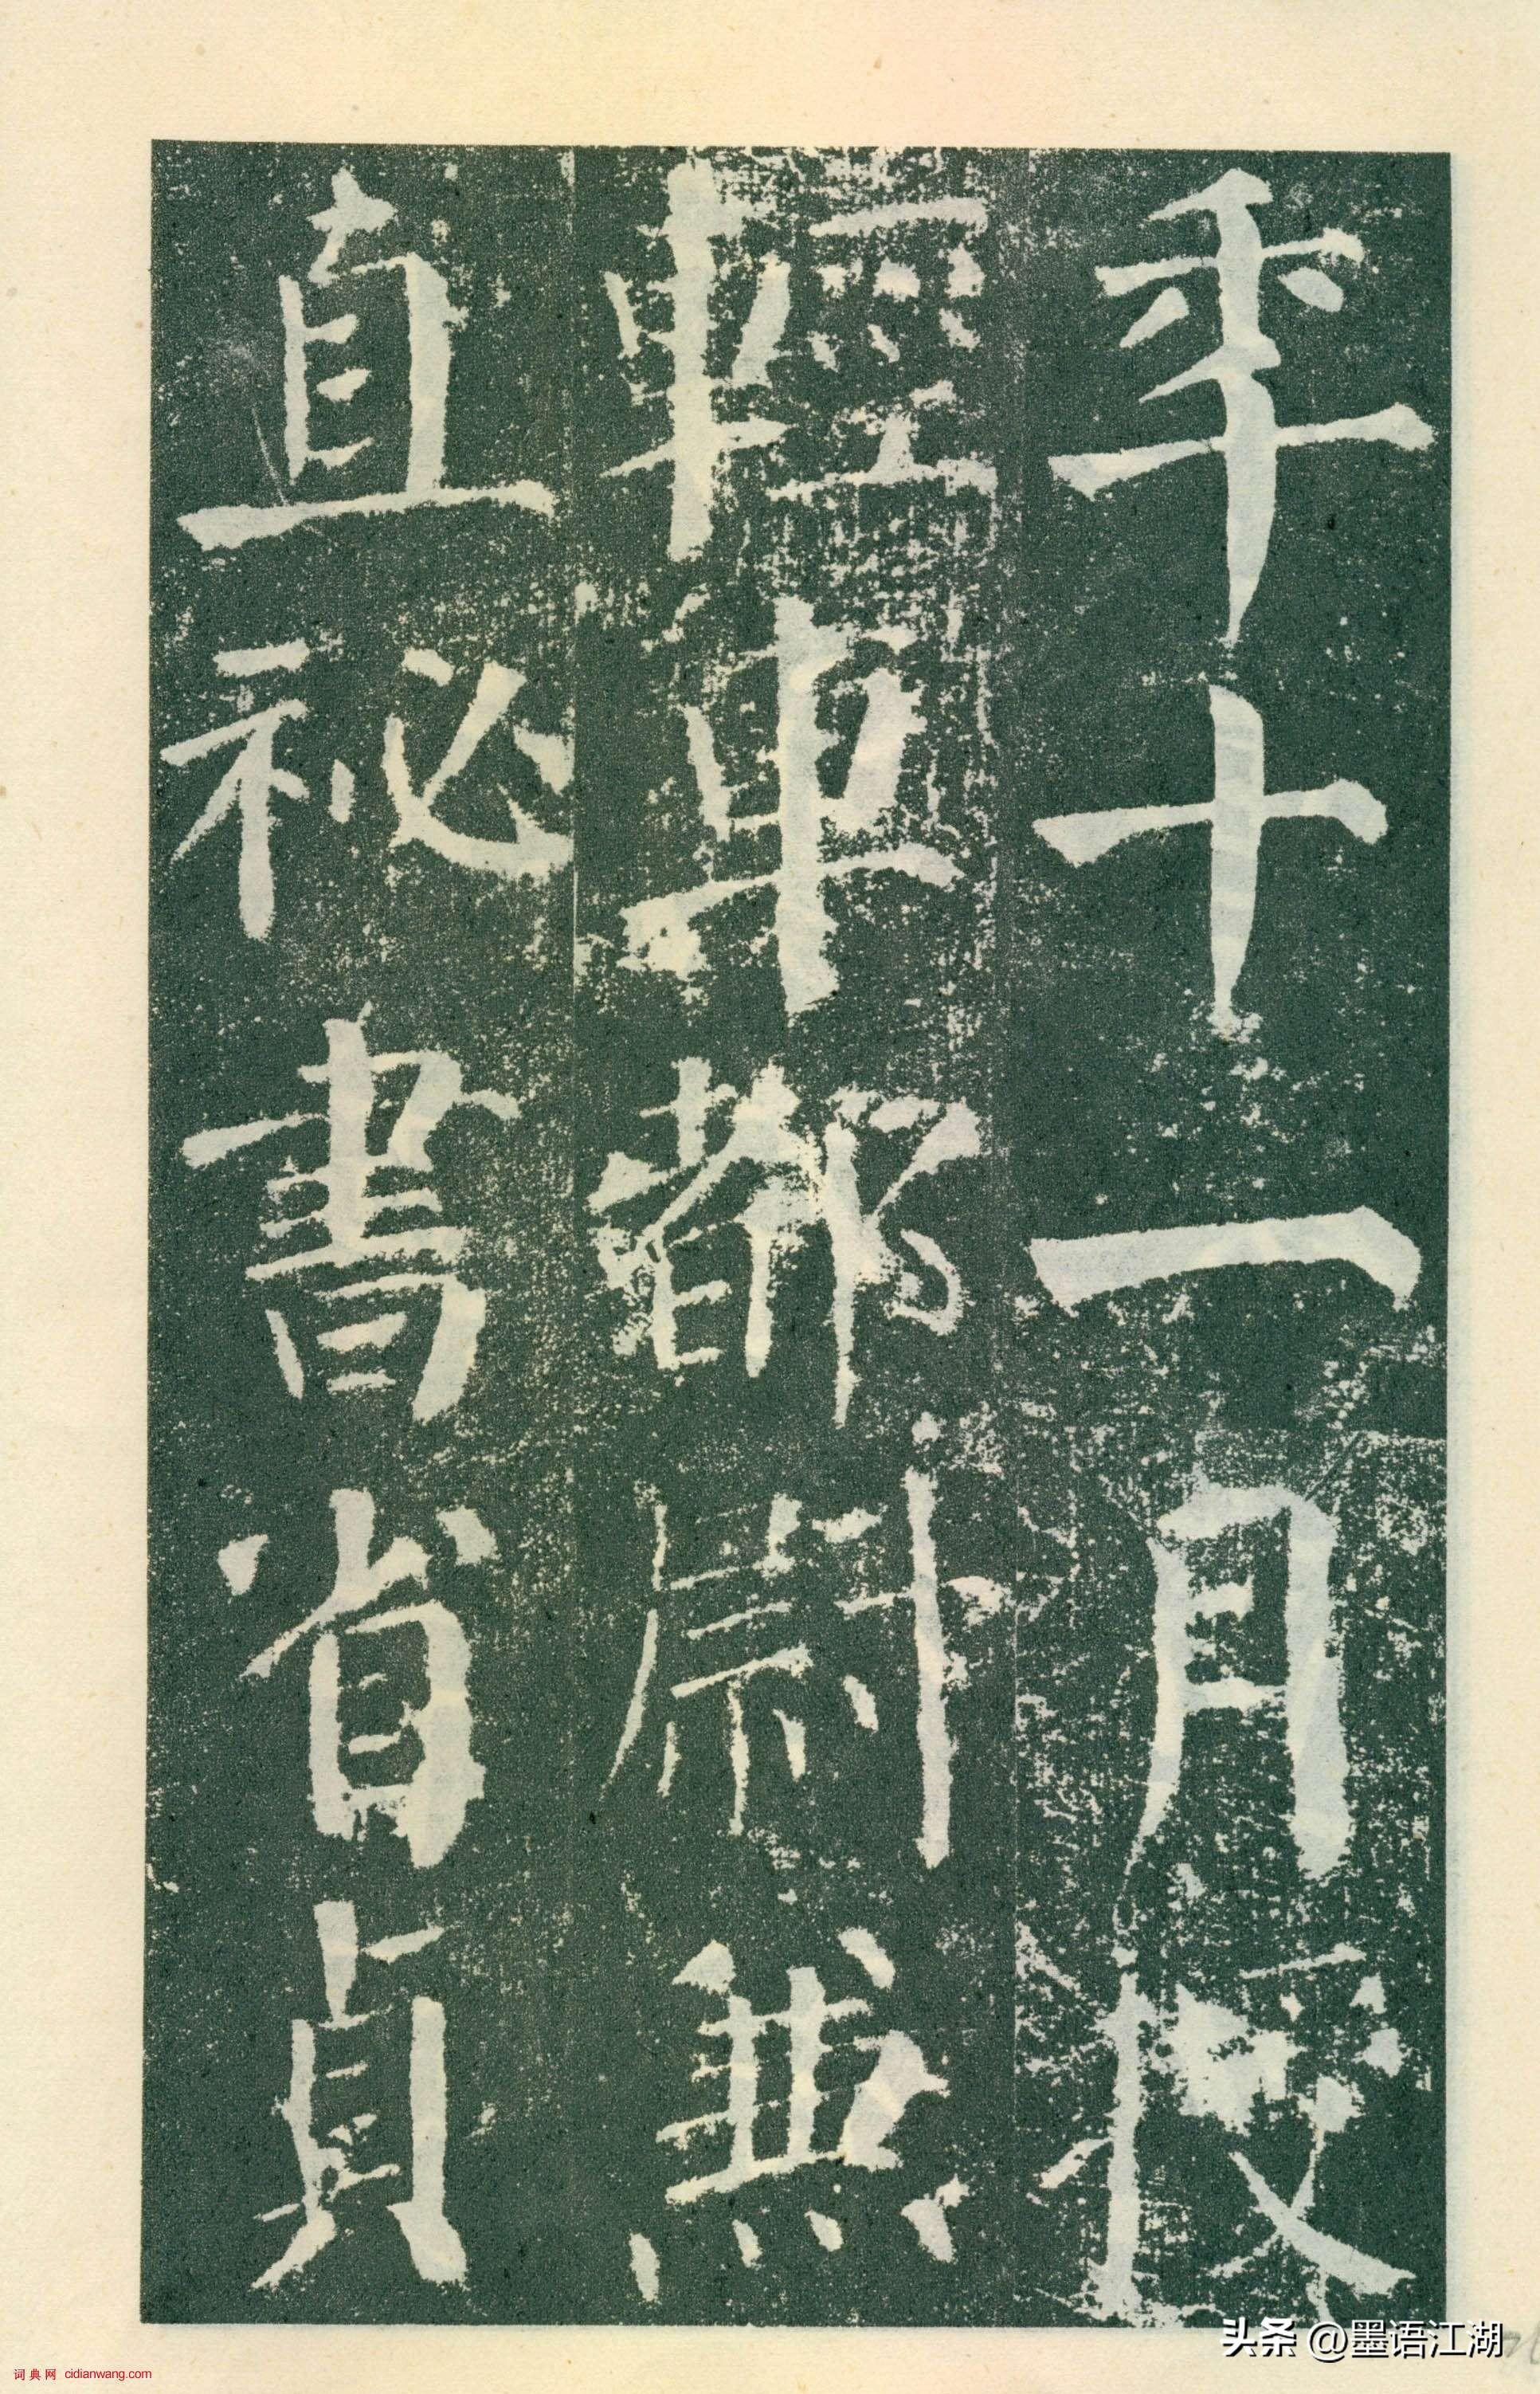 年十一月授
輕車都尉兼
直祕書省貞
头条 @墨语江湖
词典网 cidianwang.com